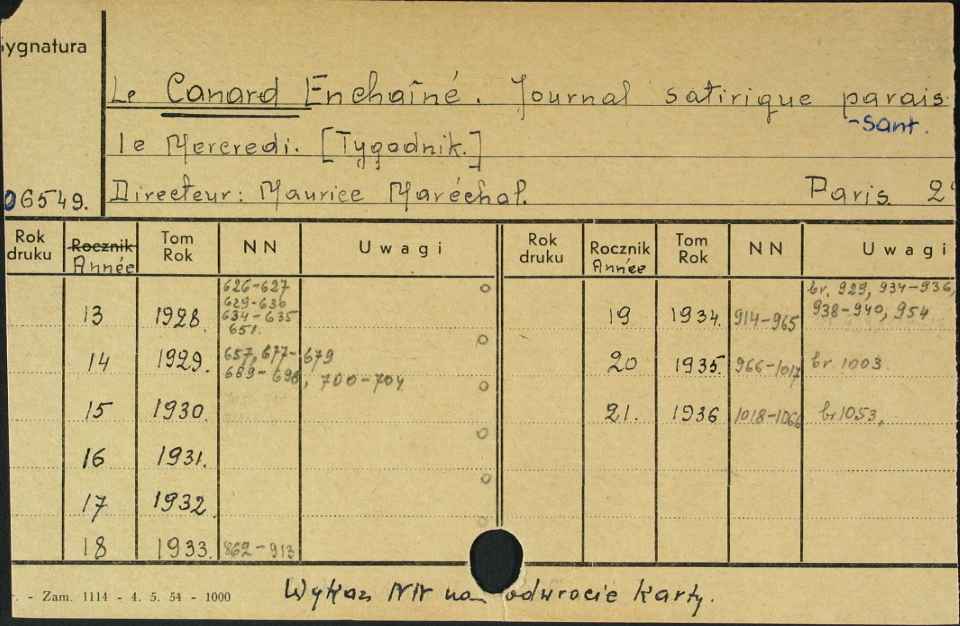 Sygnatura
Le Canard Enchaîné. Journal satirique parais
-sant.
le Mercredi. [Tygodnik.]
06549.
Directeur: Maurice Maréchal.
Paris 2
Rok druku
Rocznik Année
Tom Rok
NN
Uwagi
Rok druku
Rocznik Année
Tom Rok
NN
Uwagi
13 1928. 626-627
629-636
634-635
651.
14 1929. 657, 677-679
689-698, 700-704
15 1930.
16 1931.
17 1932.
18 1933. 862-913
19 1934. 914-965 br. 929, 934-936,
938-940, 954
20 1935. 966-1017 br 1003.
21. 1936 1018-1066 br 1053.
- Zam. 1114 - 4. 5. 54 - 1000
Wykaz NN na odwrocie karty.